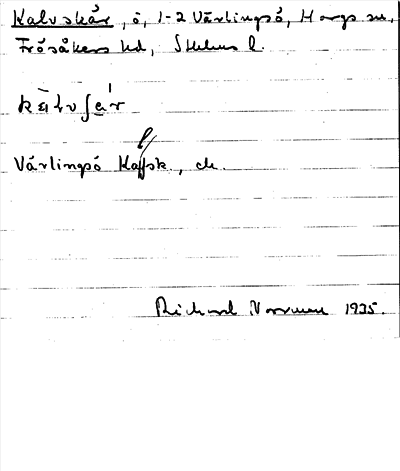 Kalvskär, ö, 1-2 Vårlingsö, Hargs sn,
Frösåkers hd, Sthlms l.
Vårlingsö Kafsk., ek.
Richard Norrman 1935.